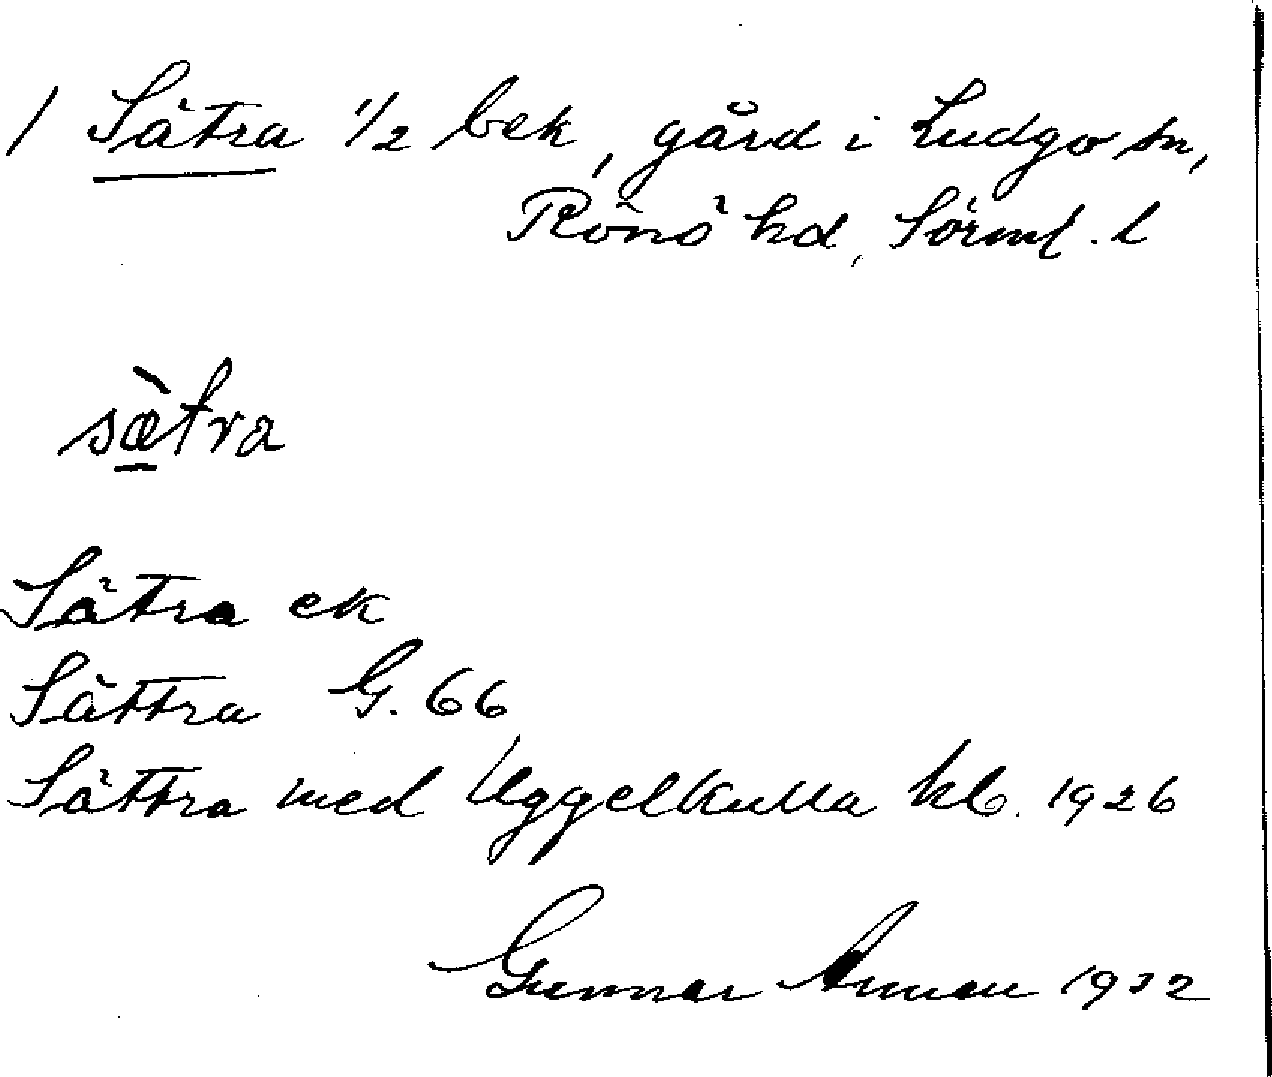 1 Sätra 1/2 bek, gård i Ludgo sn,
Rönö hd, Sörml. l
sæ̀tra
Sätra ek
Sättra G. 66
Sättra med Uggelkulla kb. 1926
Gunnar 1932